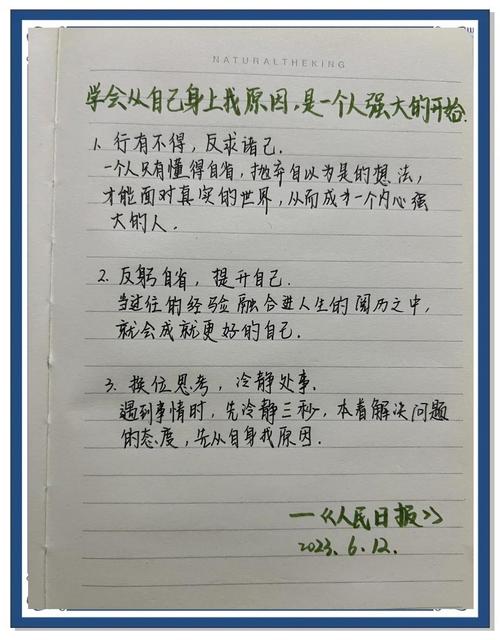 NATURALTHEKING
学会从自己身上找原因,是一个人强大的开始.
1. 行有不得,反求诸己.
一个人只有懂得自省,抛弃自以为是的想法,
才能面对真实的世界,从而成为一个内心强
大的人.
2. 反躬自省,提升自己.
当过往的经验融合进人生的阅历之中,
就会成就更好的自己.
3. 换位思考,冷静处事.
遇到事情时,先冷静三秒,本着解决问题
的态度,先从自身找原因.
—《人民日报》
2023.6.12.